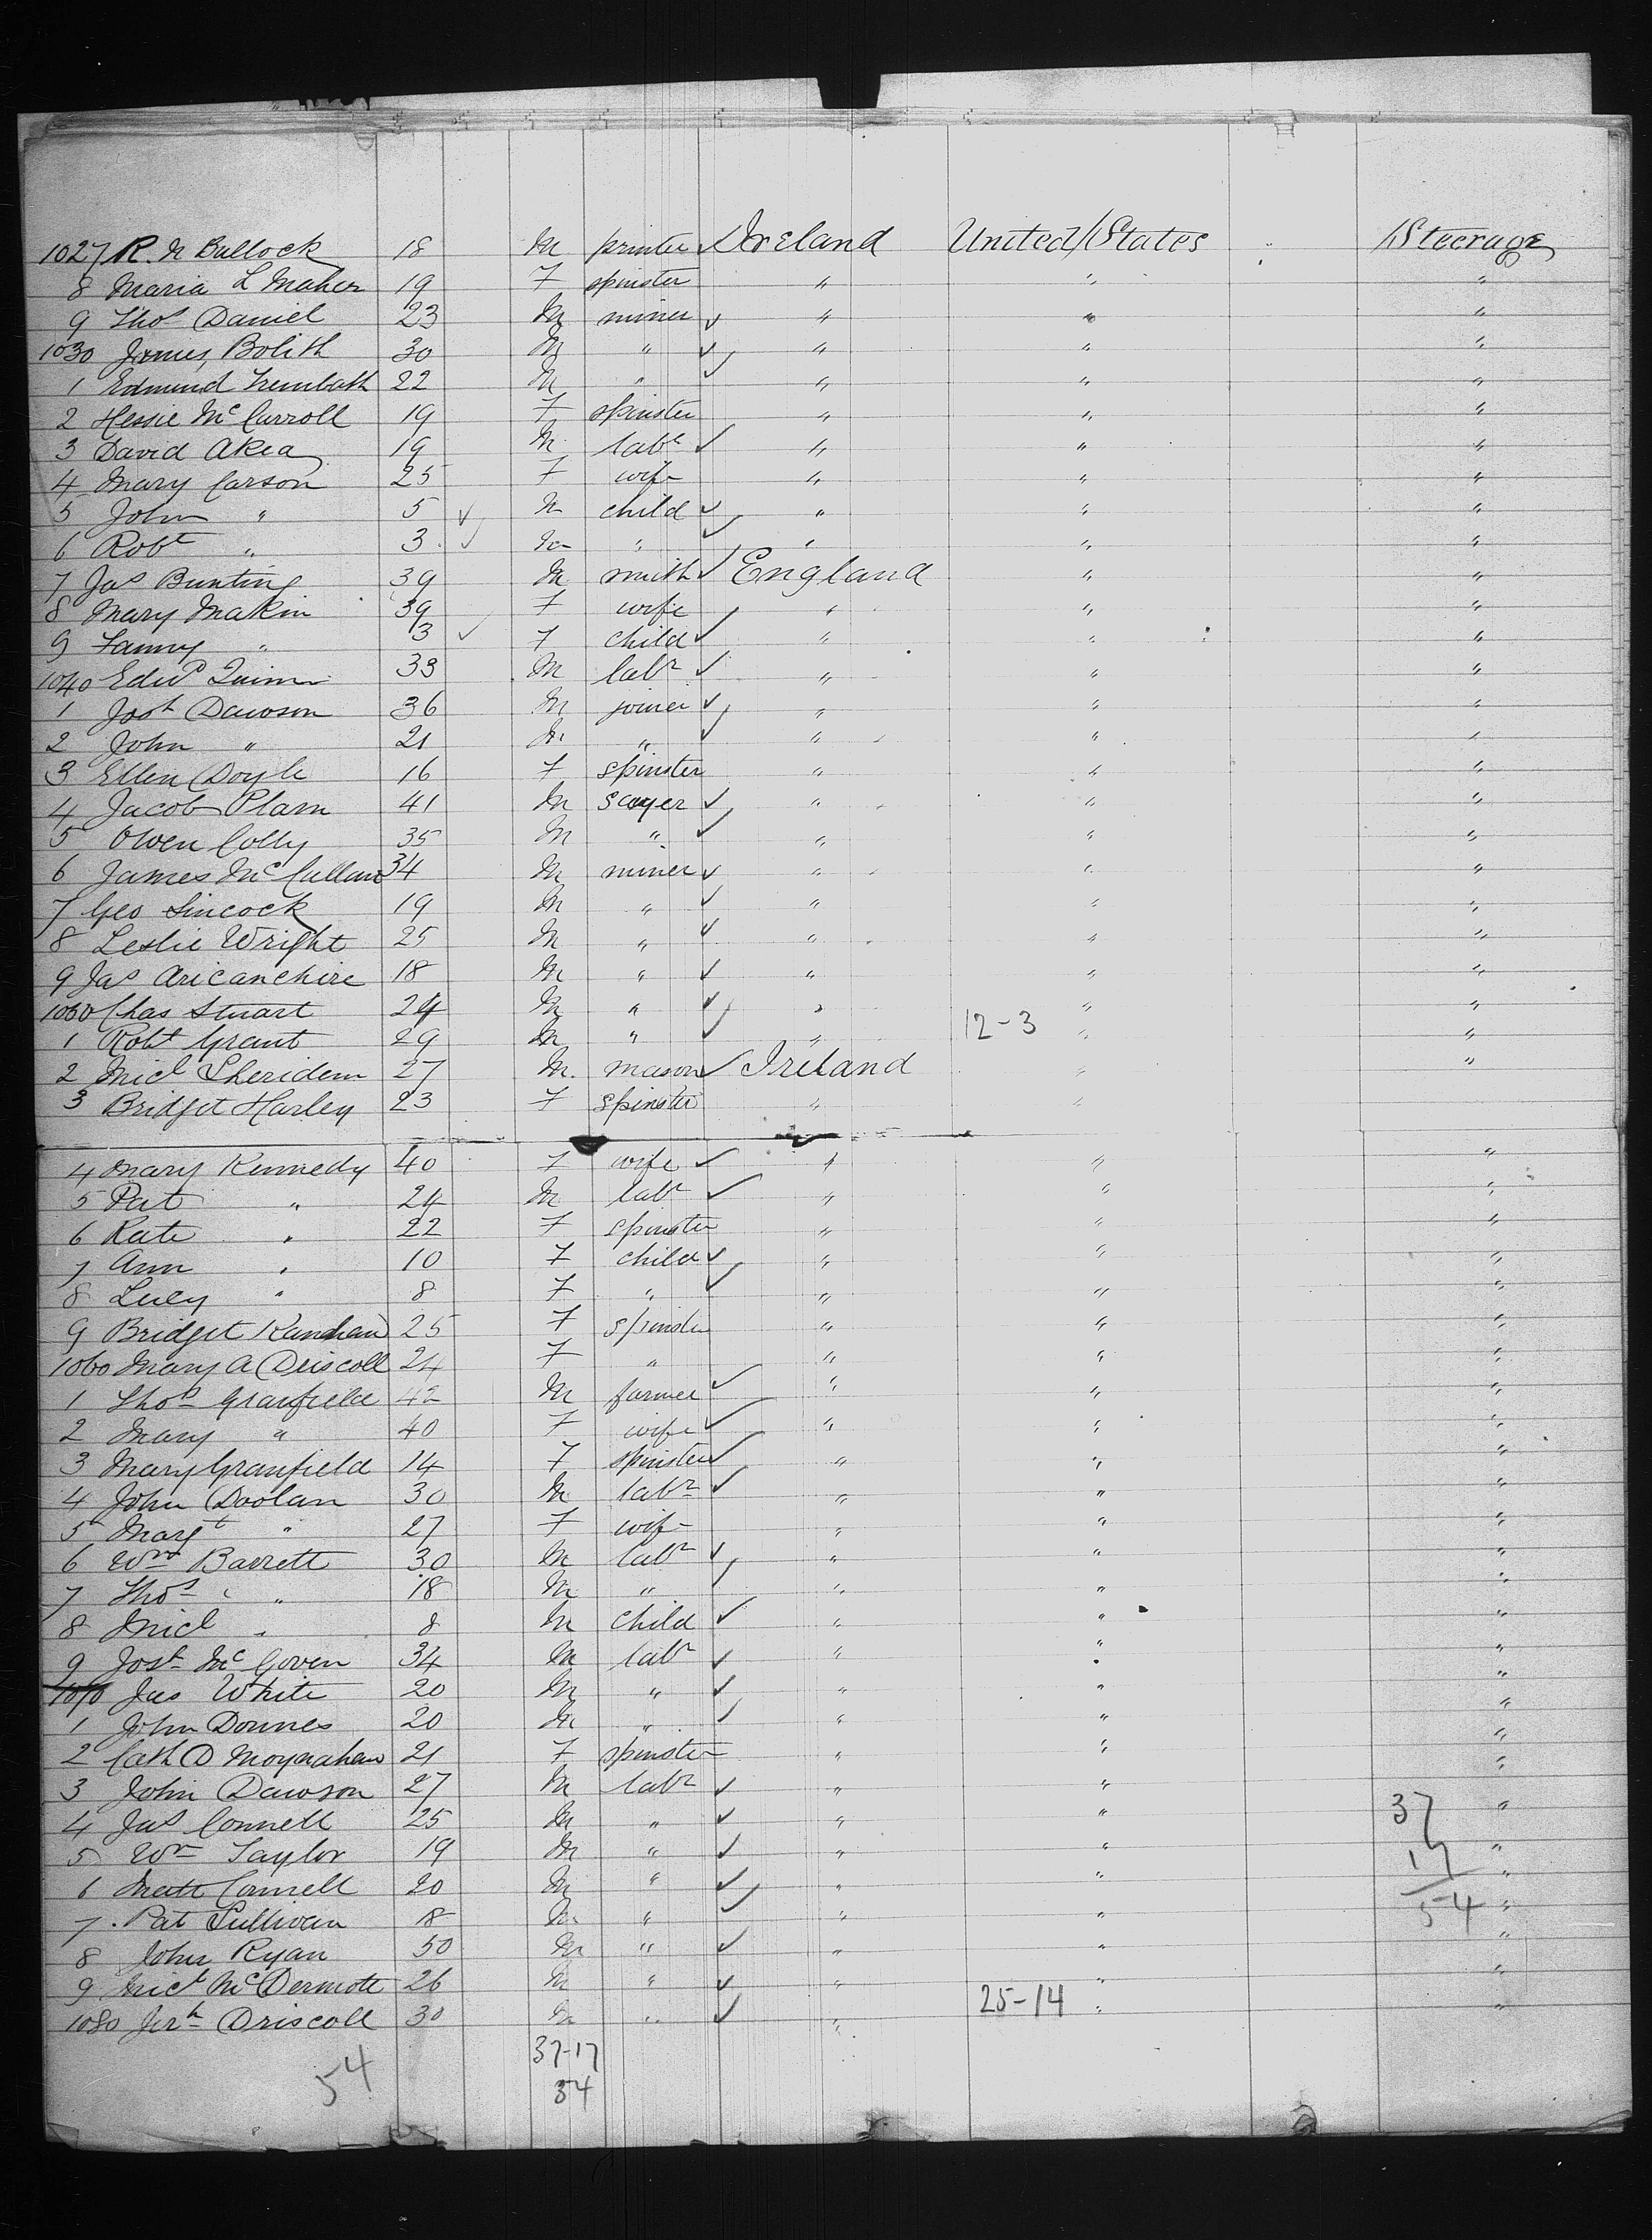 1027 R. N Bullock 18 M printer Ireland United States Steerage
8 Maria L Maher 19 F spinster " " "
9 Thos Daniel 23 M miner " " "
1030 James Bolith 30 M " " " "
1 Edmund Trembath 22 M " " " "
2 Hessie McCarroll 19 F spinster " " "
3 David Akea 19 M labr " " "
4 Mary Carson 25 F wife " " "
5 John " 5 M child " " "
6 Robt " 3 M " " " "
7 Jas Bunting 39 M smith England " "
8 Mary Makin 39 F wife " " "
9 Fanny " 3 F child " " "
1040 Edwd Quinn 33 M labr " " "
1 Josh Dawson 36 M joiner " " "
2 John " 21 M " " " "
3 Ellen Doyle 16 F spinster " " "
4 Jacob Plam 41 M " " "
5 Owen Colly 35 M " " " "
6 James McCallum 34 M miner " " "
7 Geo Sincock 19 M " " " "
8 Leslie Wright 25 M " " " "
9 Jas 18 M " " " "
1050 Chas Stuart 24 M " " " "
1 Robt Grant 29 M " " 12-3 " "
2 Micl Sheridem 27 M mason Ireland " "
3 Bridget Harley 23 F spinster " "
4 Mary Kennedy 40 F wife " " "
5 Pat " 24 M labr " " "
6 Kate " 22 F spinster " " "
7 Ann " 10 F child " " "
8 Lucy " 8 F " " " "
9 Bridget 25 F spinster " " "
1060 Mary A Driscoll 24 F " " " "
1 Thos Granfield 42 M farmer " " "
2 Mary " 40 F wife " " "
3 Mary Granfield 14 F spinster " " "
4 John Doolan 30 M labr " " "
5 Margt " 27 F wife " " "
6 Wm Barrett 30 M labr " " "
7 Thos " 18 M " " " "
8 Micl " 8 M child " " "
9 Josh McGoven 34 M labr " " "
1070 Jas White 20 M " " " "
1 John Downes 20 M " " " "
2 Cath D Moynahan 21 F spinster " " "
3 John Dawson 27 M labr " " "
4 Jas Connell 25 M " " " "
37
5 Wm Taylor 19 M " " " "
17
6 Matt Connell 20 M " " " "
54
7 Pat Sullivan 18 M " " " "
8 John Ryan 50 M " " " "
9 Micl McDermott 26 M " " " "
1080 Jerh Driscoll 30 M " " 25-14 " "
37-17
54 54